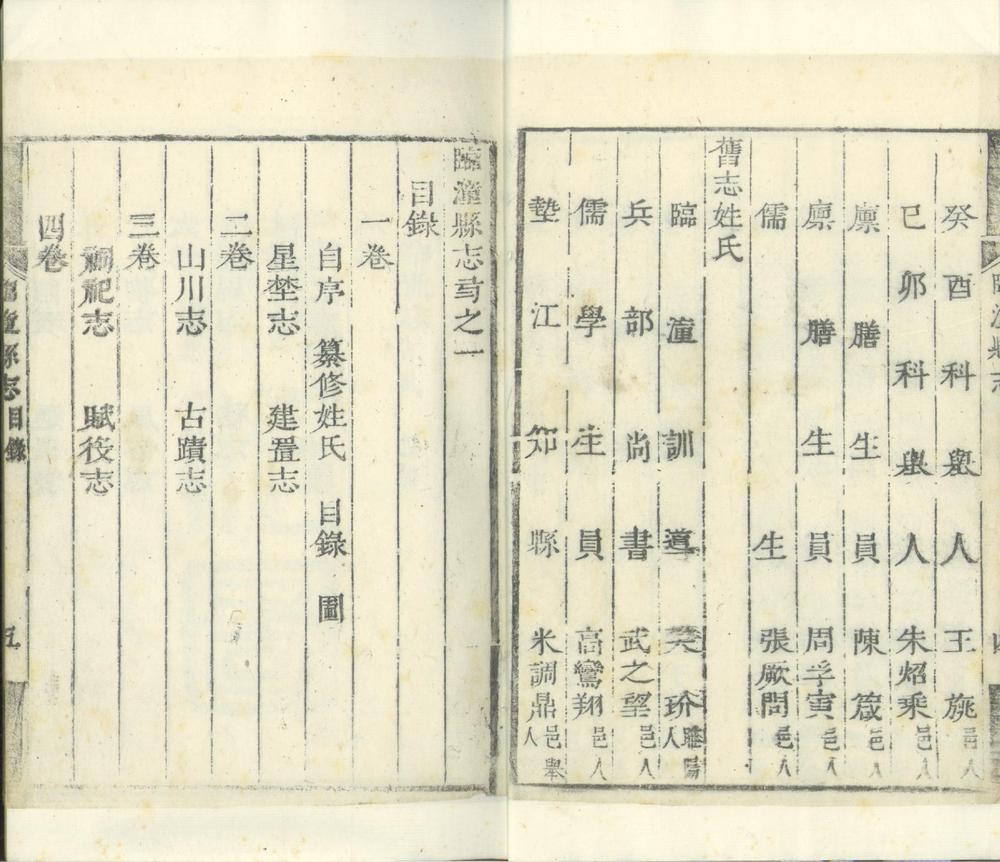 癸酉科舉人 王旐 邑人
己卯科舉人 朱炤乘 邑人
廩膳生員 陳箴 邑人
廩膳生員 周孚寅 邑人
儒生 張厥問 邑人
舊志姓氏
臨潼訓導 玠 睢陽人
兵部尚書 武之望 邑人
儒學生員 高鸞翔 邑人
墊江知縣 米調鼎 邑舉人
臨潼縣志 之一
目錄
一卷
自序 纂修姓氏 目錄 圖
星埜志 建置志
二卷
山川志 古蹟志
三卷
祠祀志 賦役志
四卷
臨潼縣志 目錄 五